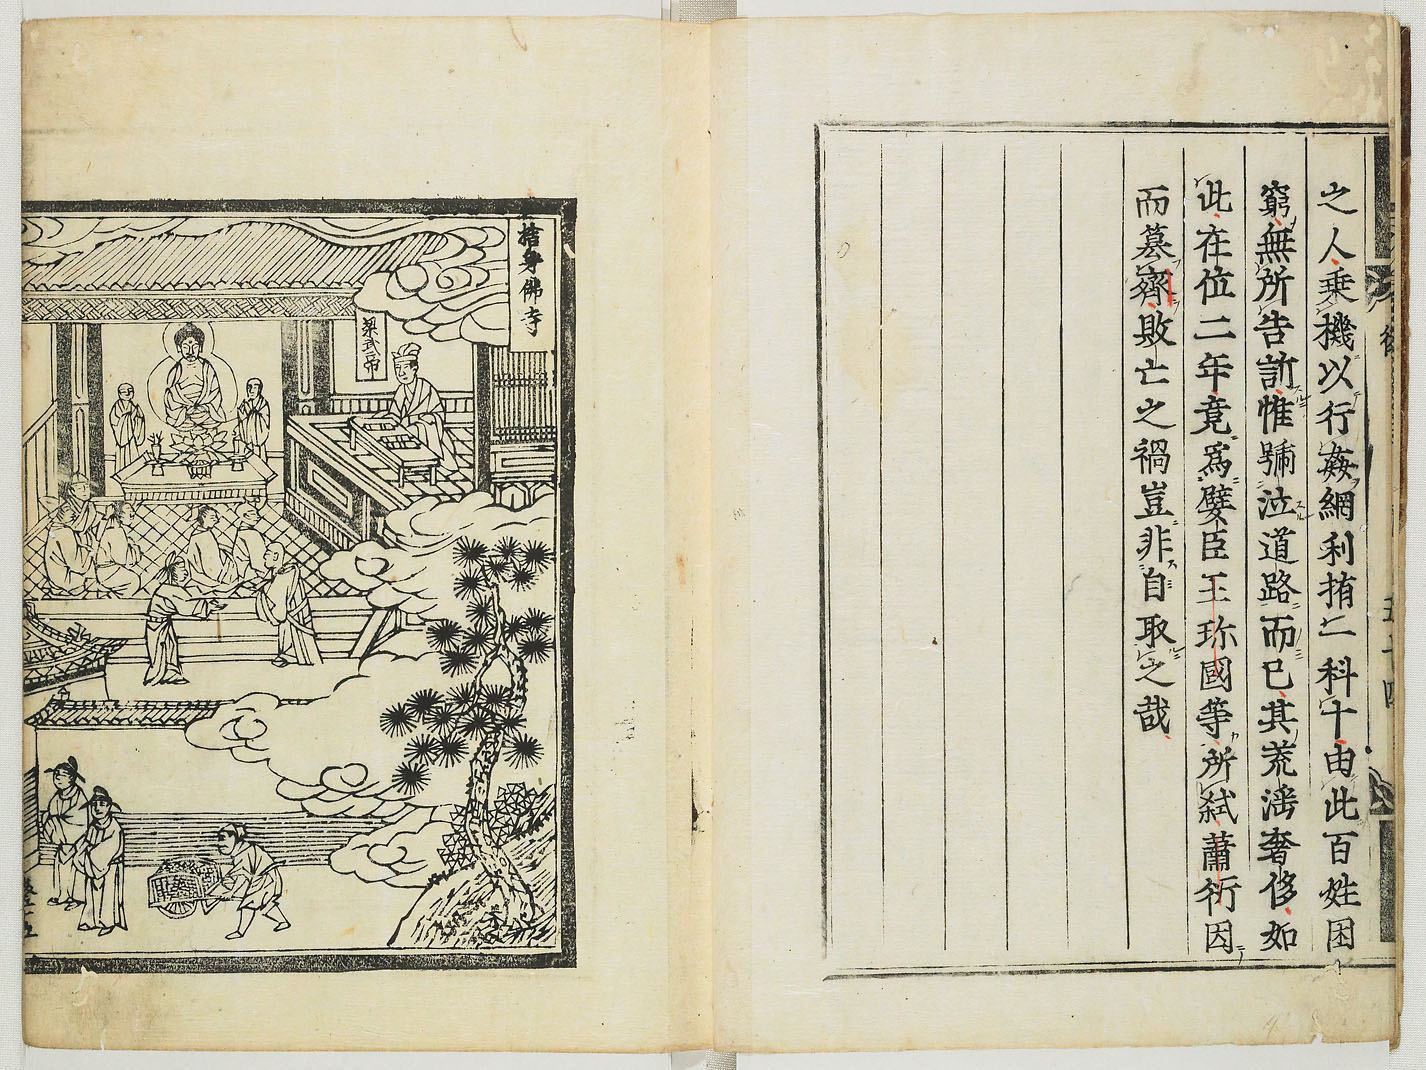 之人乗機以行姦網利拵一科十由此百姓困
窮無所告訴惟號泣道路而已其荒淫奢侈如
此在位二年竟爲嬖臣王珍國等所弒蕭衍因
而簒齊敗亡之禍豈非自取之哉
五十四
捨身佛寺
梁武帝